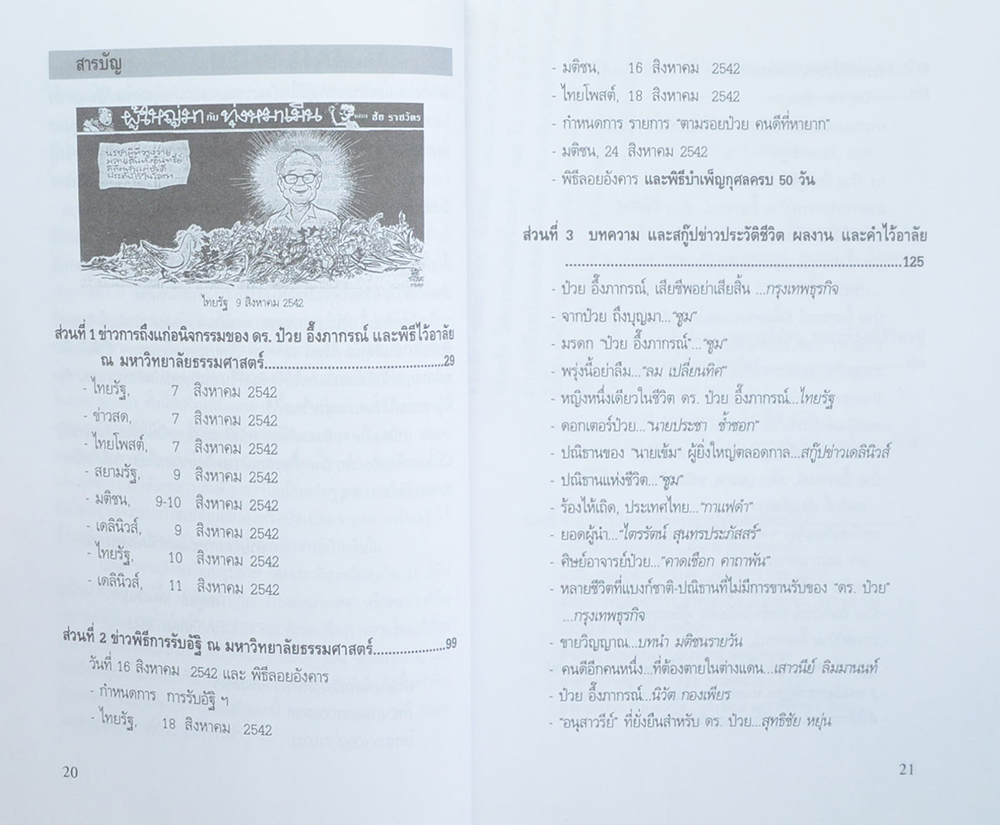 สารบัญ
ผู้ใหญ่มา กับ ทุ่งหมาเมิน
ชัย ราชวัตร
นรชาติที่วางวาย
มลายสิ้นทั้งอินทรีย์
สถิตทั่วแต่ชั่วดี
ประดับไว้ในโลกา
ไทยรัฐ 9 สิงหาคม 2542
ส่วนที่ 1 ข่าวการถึงแก่อนิจกรรมของ ดร. ป๋วย อึ๊งภากรณ์ และพิธีไว้อาลัย
ณ มหาวิทยาลัยธรรมศาสตร์...............................................29
- ไทยรัฐ, 7 สิงหาคม 2542
- ข่าวสด, 7 สิงหาคม 2542
- ไทยโพสต์, 7 สิงหาคม 2542
- สยามรัฐ, 9 สิงหาคม 2542
- มติชน, 9-10 สิงหาคม 2542
- เดลินิวส์, 9 สิงหาคม 2542
- ไทยรัฐ, 10 สิงหาคม 2542
- เดลินิวส์, 11 สิงหาคม 2542
ส่วนที่ 2 ข่าวพิธีการรับอัฐิ ณ มหาวิทยาลัยธรรมศาสตร์...................99
วันที่ 16 สิงหาคม 2542 และ พิธีลอยอังคาร
- กำหนดการ การรับอัฐิ ฯ
- ไทยรัฐ, 18 สิงหาคม 2542
20
- มติชน, 16 สิงหาคม 2542
- ไทยโพสต์, 18 สิงหาคม 2542
- กำหนดการ รายการ "ตามรอยป๋วย คนดีที่หายาก"
- มติชน, 24 สิงหาคม 2542
- พิธีลอยอังคาร และพิธีบำเพ็ญกุศลครบ 50 วัน
ส่วนที่ 3 บทความ และสกู๊ปข่าวประวัติชีวิต ผลงาน และคำไว้อาลัย
.......................................................................................125
- ป๋วย อึ๊งภากรณ์, เสียชีพอย่าเสียสิ้น ...กรุงเทพธุรกิจ
- จากป๋วย ถึงบุญมา..."ซูม"
- มรดก "ป๋วย อึ๊งภากรณ์"..."ซูม"
- พรุ่งนี้อย่าลืม..."ลม เปลี่ยนทิศ"
- หญิงหนึ่งเดียวในชีวิต ดร. ป๋วย อึ๊งภากรณ์...ไทยรัฐ
- ดอกเตอร์ป๋วย..."นายประชา ช้ำชอก"
- ปณิธานของ "นายเข้ม" ผู้ยิ่งใหญ่ตลอดกาล...สกู๊ปข่าวเดลินิวส์
- ปณิธานแห่งชีวิต..."ซูม"
- ร้องไห้เถิด, ประเทศไทย..."กาแฟดำ"
- ยอดผู้นำ..."ไตรรัตน์ สุนทรประภัสสร์"
- ศิษย์อาจารย์ป๋วย..."คาดเชือก คาถาพัน"
- หลายชีวิตที่แบงก์ชาติ-ปณิธานที่ไม่มีการขานรับของ "ดร. ป๋วย"
...กรุงเทพธุรกิจ
- ขายวิญญาณ..บทนำ มติชนรายวัน
- คนดีอีกคนหนึ่ง...ที่ต้องตายในต่างแดน...เสาวนีย์ ลิมมานนท์
- ป๋วย อึ๊งภากรณ์..นิวัต กองเพียร
- "อนุสาวรีย์" ที่ยั่งยืนสำหรับ ดร. ป๋วย...สุทธิชัย หยุ่น
21